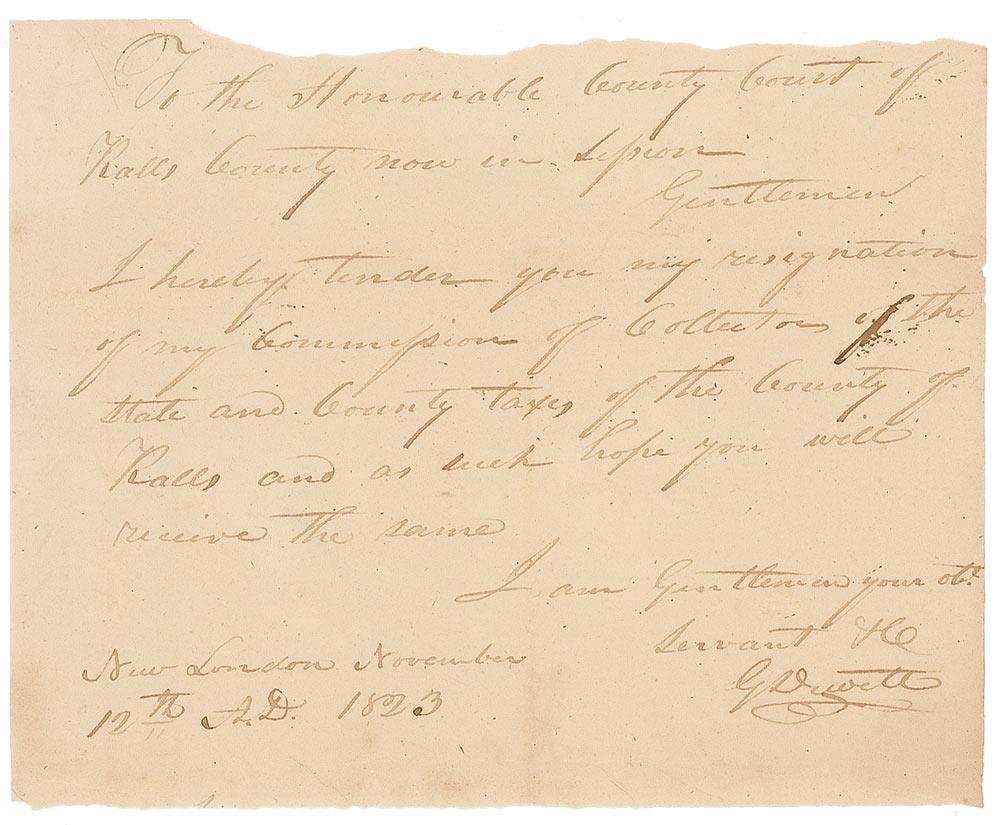 To the Honourable County Court of
Ralls County now in Session
Gentlemen
I hereby tender you my resignation
of my Commission of Collector of the
state and County taxes of the County of
Ralls and as such hope you will
receive the same
I am Gentlemen your obt.
servant &C
G Dewitt
New London November
12th A.D. 1823